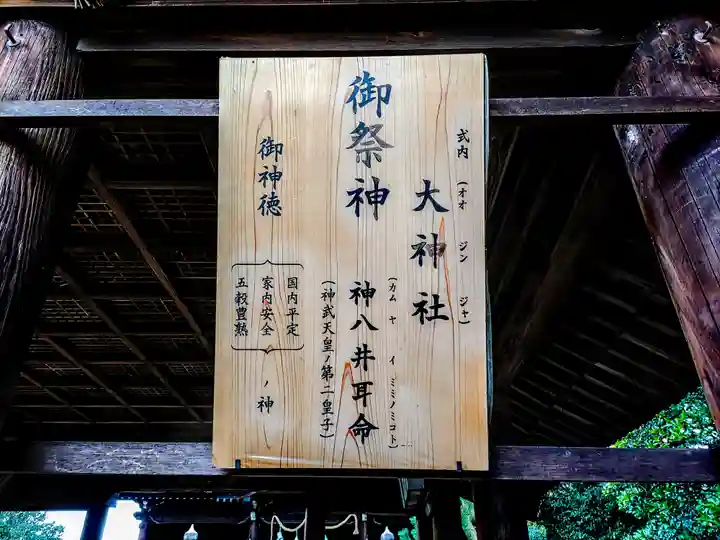 式内 大神社
(オオ ジン ジャ)
御祭神 神八井耳命
(カム ヤ イ ミミノミコト)
(神武天皇ノ第二皇子)
御神徳
国内平定
家内安全
五穀豊熟
ノ神